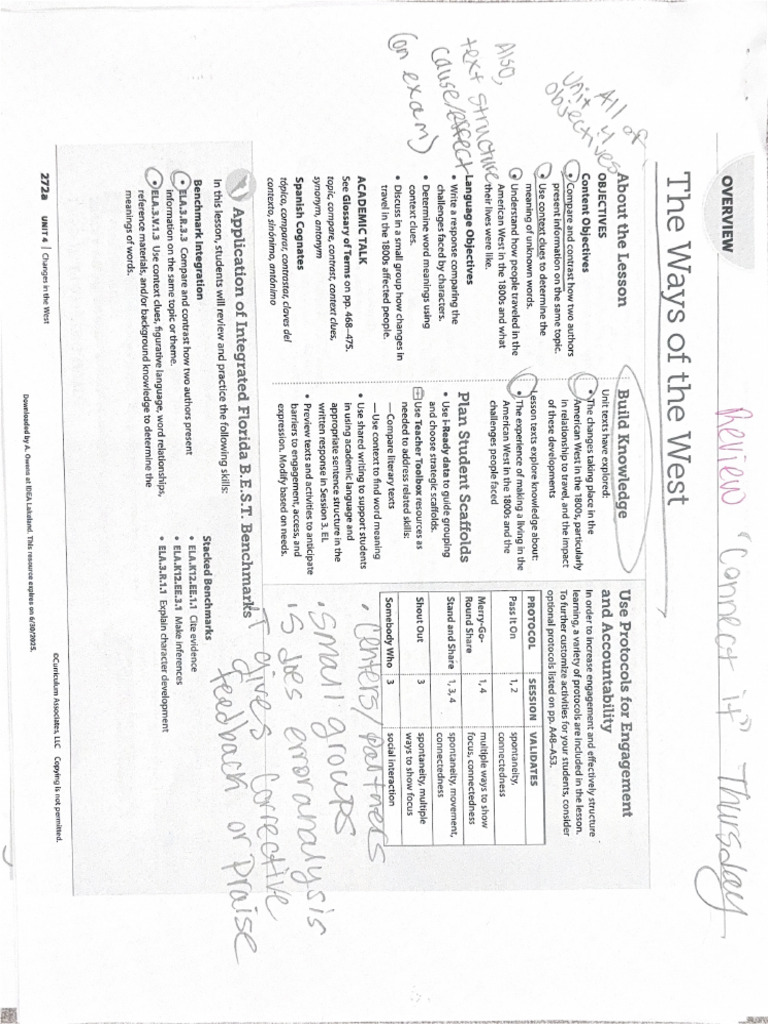 OVERVIEW
Review "Connect it" Thursday
The Ways of the West
All of
Unit 4
objectives
Also,
text structure
cause/effect
(on exam)
About the Lesson
OBJECTIVES
Content Objectives
• Compare and contrast how two authors
present information on the same topic.
• Use context clues to determine the
meaning of unknown words.
• Understand how people traveled in the
American West in the 1800s and what
their lives were like.
Language Objectives
• Write a response comparing the
challenges faced by characters.
• Determine word meanings using
context clues.
• Discuss in a small group how changes in
travel in the 1800s affected people.
ACADEMIC TALK
See Glossary of Terms on pp. 468–475.
topic, compare, contrast, context clues,
synonym, antonym
Spanish Cognates
tópico, comparar, contrastar, claves del
contexto, sinónimo, antónimo
Build Knowledge
Unit texts have explored:
• The changes taking place in the
American West in the 1800s, particularly
in relationship to travel, and the impact
of these developments
Lesson texts explore knowledge about:
• The experience of making a living in the
American West in the 1800s and the
challenges people faced
Plan Student Scaffolds
• Use i-Ready data to guide grouping
and choose strategic scaffolds.
Use Teacher Toolbox resources as
needed to address related skills:
—Compare literary texts
—Use context to find word meaning
• Use shared writing to support students
in using academic language and
appropriate sentence structure in the
written response in Session 3. EL
• Preview texts and activities to anticipate
barriers to engagement, access, and
expression. Modify based on needs.
Use Protocols for Engagement
and Accountability
In order to increase engagement and effectively structure
learning, a variety of protocols are included in the lesson.
To further customize activities for your students, consider
optional protocols listed on pp. A48–A53.
PROTOCOL SESSION VALIDATES
Pass It On 1, 2 spontaneity,
connectedness
Merry-Go-
Round Share 1, 4 multiple ways to show
focus, connectedness
Stand and Share 1, 3, 4 spontaneity, movement,
connectedness
Shout Out 3 spontaneity, multiple
ways to show focus
Somebody Who 3 social interaction
• Centers/partners
• Small groups
• S does error analysis
T gives corrective
feedback or praise
Application of Integrated Florida B.E.S.T. Benchmarks
In this lesson, students will review and practice the following skills:
Benchmark Integration
• ELA.3.R.3.3 Compare and contrast how two authors present
information on the same topic or theme.
• ELA.3.V.1.3 Use context clues, figurative language, word relationships,
reference materials, and/or background knowledge to determine the
meanings of words.
Stacked Benchmarks
• ELA.K12.EE.1.1 Cite evidence
• ELA.K12.EE.3.1 Make inferences
• ELA.3.R.1.1 Explain character development
272a UNIT 4 | Changes in the West
©Curriculum Associates, LLC Copying is not permitted.
Downloaded by A. Owens at IDEA Lakeland. This resource expires on 6/30/2025.